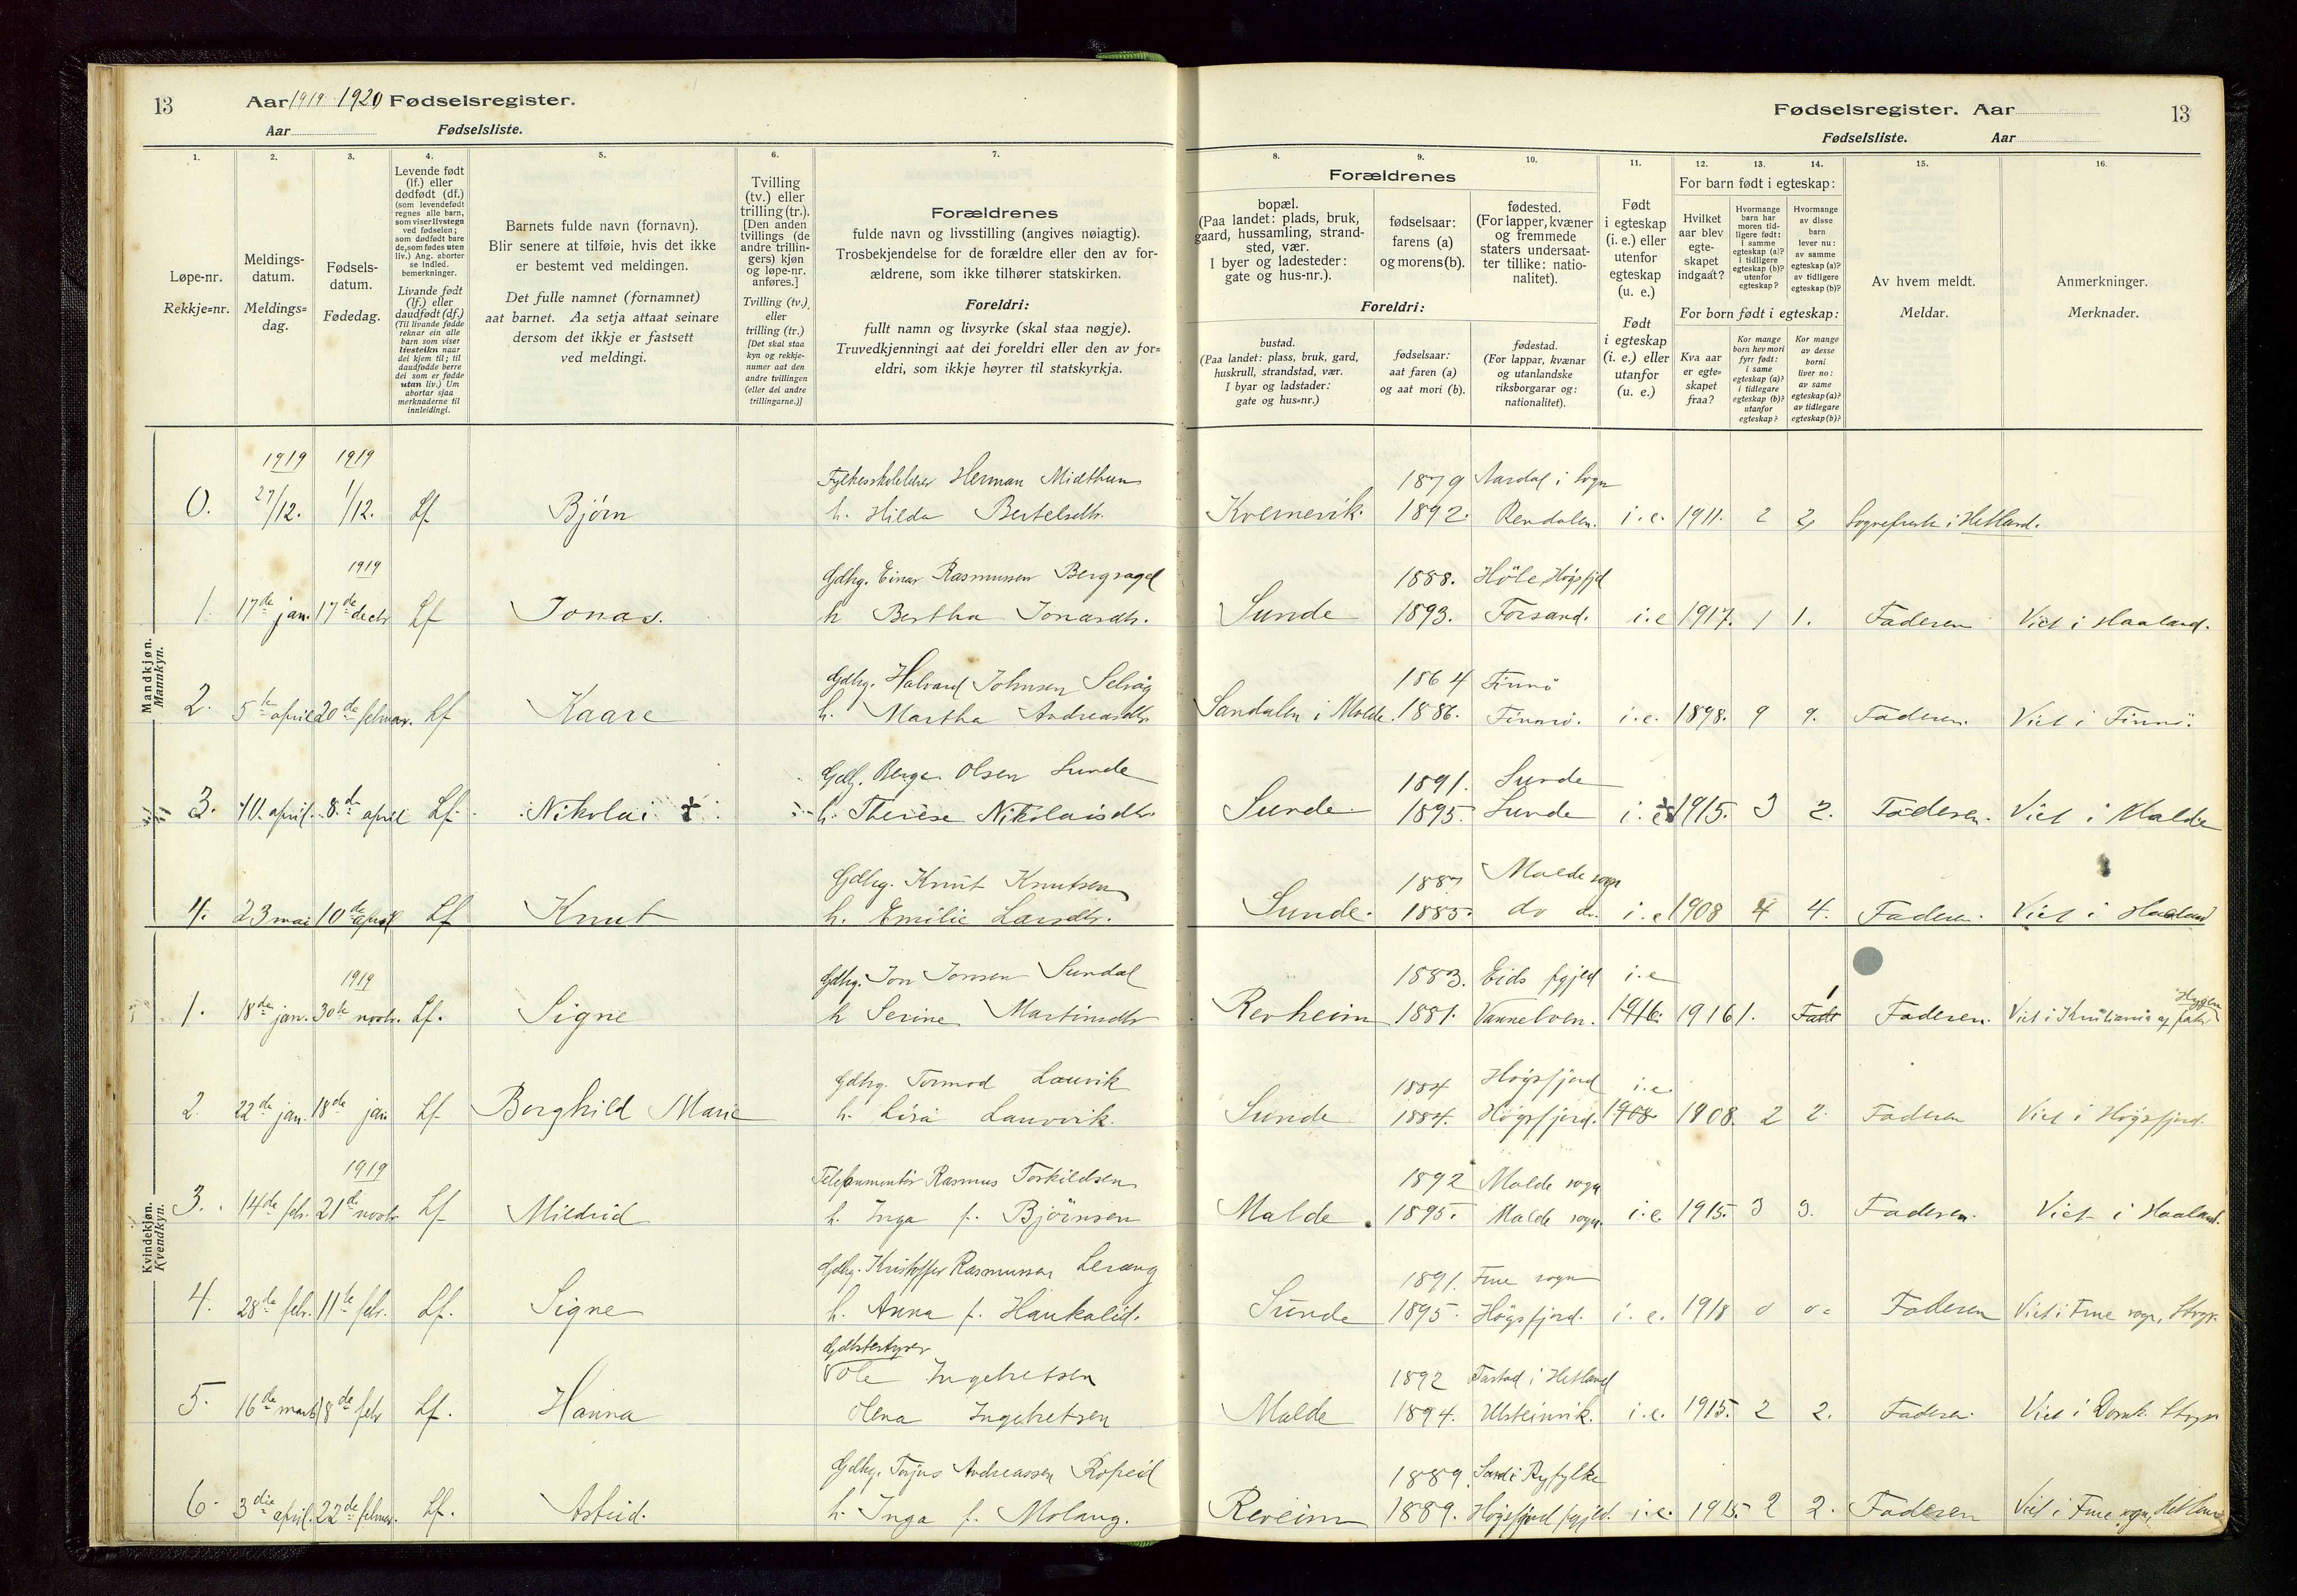 13
Aar 1919 1920 Fødselsregister.
Aar Fødselsliste.
Fødselsregister. Aar
13
Fødselsliste. Aar
1.
Løpe-nr.
Rekkje=nr.
2.
Meldings-
datum.
Meldings=
dag.
3.
Fødsels-
datum.
Fødedag.
4.
Levende født
(lf.) eller
dødfødt (df.)
(som levendefødt
regnes alle barn,
som viser livstegn
ved fødselen;
som dødfødt bare
de, som fødes uten
liv.) Ang. aborter
se indled.
bemerkninger.
Livande født
(lf.) eller
daudfødt (df.)
(Til livande fødde
reknar ein alle
barn som viser
livsteikn naar
dei kjem til; til
daudfødde berre
dei som er fødde
utan liv.) Um
abortar sjaa
merknaderne til
innleidingi.
5.
Barnets fulde navn (fornavn).
Blir senere at tilføie, hvis det ikke
er bestemt ved meldingen.
Det fulle namnet (fornamnet)
aat barnet. Aa setja attaat seinare
dersom det ikkje er fastsett
ved meldingi.
6.
Tvilling
(tv.) eller
trilling (tr.).
[Den anden
tvillings (de
andre trillin-
gers) kjøn
og løpe-nr.
anføres.]
Tvilling (tv.)
eller
trilling (tr.)
[Det skal staa
kyn og rekkje-
numer aat den
andre tvillingen
(eller dei andre
trillingarne.)]
7.
Forældrenes
fulde navn og livsstilling (angives nøiagtig).
Trosbekjendelse for de forældre eller den av for-
ældrene, som ikke tilhører statskirken.
Foreldri:
fullt namn og livsyrke (skal staa nøgje).
Truvedkjenningi aat dei foreldri eller den av for=
eldri, som ikkje høyrer til statskyrkja.
8.
9.
10.
Forældrenes
bopæl.
(Paa landet: plads, bruk,
gaard, hussamling, strand-
sted, vær.
I byer og ladesteder:
gate og hus-nr.).
fødselsaar:
farens (a)
og morens (b).
fødested.
(For lapper, kvæner
og fremmede
staters undersaat-
ter tillike: natio-
nalitet).
Foreldri:
bustad.
(Paa landet: plass, bruk, gard,
huskrull, strandstad, vær.
I byar og ladstader:
gate og hus=nr.)
fødselsaar:
aat faren (a)
og aat mori (b).
fødestad.
(For lappar, kvænar
og utanlandske
riksborgarar og:
nationalitet).
11.
Født
i egteskap
(i. e.) eller
utenfor
egteskap
(u. e.)
Født
i egteskap
(i. e.) eller
utanfor
(u. e.)
12.
13.
14.
For barn født i egteskap:
Hvilket
aar blev
egte-
skapet
indgaat?
Hvormange
barn har
moren tid-
ligere født:
i samme
egteskap (a)?
i tidligere
egteskap (b)?
utenfor
egteskap?
Hvormange
av disse
barn
lever nu:
av samme
egteskap (a)?
av tidligere
egteskap (b)?
For born født i egteskap:
Kva aar
er egte=
skapet
fraa?
Kor mange
born hev mori
fyrr født:
i same
egteskap (a)?
i tidlegare
egteskap (b)?
utanfor
egteskap?
Kor mange
av desse
borni
liver no:
av same
egteskap (a)?
av tidlegare
egteskap (b)?
15.
Av hvem meldt.
Meldar.
16.
Anmerkninger.
Merknader.
Mandkjøn.
Mannkyn.
1919 1919 Herman Midthun 1879 Aardal i Sogn
0. 27/12. 1/12. Lf. Bjørn h. Hilda Bertelsdtr. Kvernevik. 1892. Rendalen. i. e. 1911. 2 2 i Hetland.
1919 Gdbrg. Einar Rasmussen Bergsagel 1888. Höle, Högsfjd
1. 17de jan. 17de decbr Lf Jonas. h Bertha Jonasdtr. Sunde 1893. Forsand. i. e 1917. 1 1. Faderen Viet i Haaland.
Gdbrg. Halvard Johnsen Selvåg 1864 Finnö
2. 5te april 20de februar. Lf Kaare h. Martha Andreasdtr. Sandalen i Malde. 1886. Finnö. i. e. 1898. 9 9. Faderen. Viet i Finnö.
Gdbr. Berge Olsen Sunde 1891. Sunde
3. 10. april. 8de april Lf. Nikolai ✝ h. Therese Nikolaisdtr. Sunde 1895. Sunde i. e 1915. 3 2. Faderen. Viet i Malde
Gdbrg. Knut Knutsen 1887 Malde sogn
4. 23 mai 10de april Lf Knut h. Emilie Larsdtr. Sunde. 1885. do do. i. e 1908 4 4. Faderen. Viet i Haaland
Kvindekjøn.
Kvendkyn.
1919 Gdbrg. Jon Jonsen Sundal 1883. Eids pgjeld i. e
1. 18de jan. 30te novbr. Lf. Signe h Serine Martinsdtr Revheim 1881. Vannelven. 1916. 1916 1. 1 Faderen. Viet i Kristiania af Hygen
Gdbrg. Tormod Lauvik 1884 Högsfjord i. e.
2. 22de jan. 18de jan Lf Borghild Marie h. Lisa Lauvvik. Sunde 1884. Högsfjord. 1908 1908. 2 2. Faderen Viet i Högsfjord.
1919 Telefonmontör Rasmus Torkildsen 1892 Malde sogn
3. 14de febr. 21de novbr Lf Mildrid h. Inga f. Björnsen Malde 1895. Malde sogn. i. e. 1915. 3 3. Faderen. Viet i Haaland.
Gdbrg. Kristoffer Rasmussen Lerang 1891. Frue sogn
4. 28de febr. 11te febr. Lf. Signe h. Anna f. Haukalid. Sunde 1895. Högsfjord. i. e. 1918 0 0. Faderen Viet i Frue sogn, Stvgr.
Gdbestyrer
Ole Ingebretsen 1892 Tastad i Hetland
5. 16de marts 18de febr Lf. Hanna Olena Ingebretsen Malde 1894. Ulsteinvik. i. e. 1915. 2 2. Faderen. Viet i Domk. Stvgr.
Gdbrg. Torjus Andreassen Ropeid 1889. Sand i Ryfylke
6. 3die april. 22de februar. Lf. Astrid. h. Inga f. Molaug. Reveim 1889. Högsfjord pgjeld. i. e. 1915. 2 2. Faderen Viet i Frue sogn, Hetland